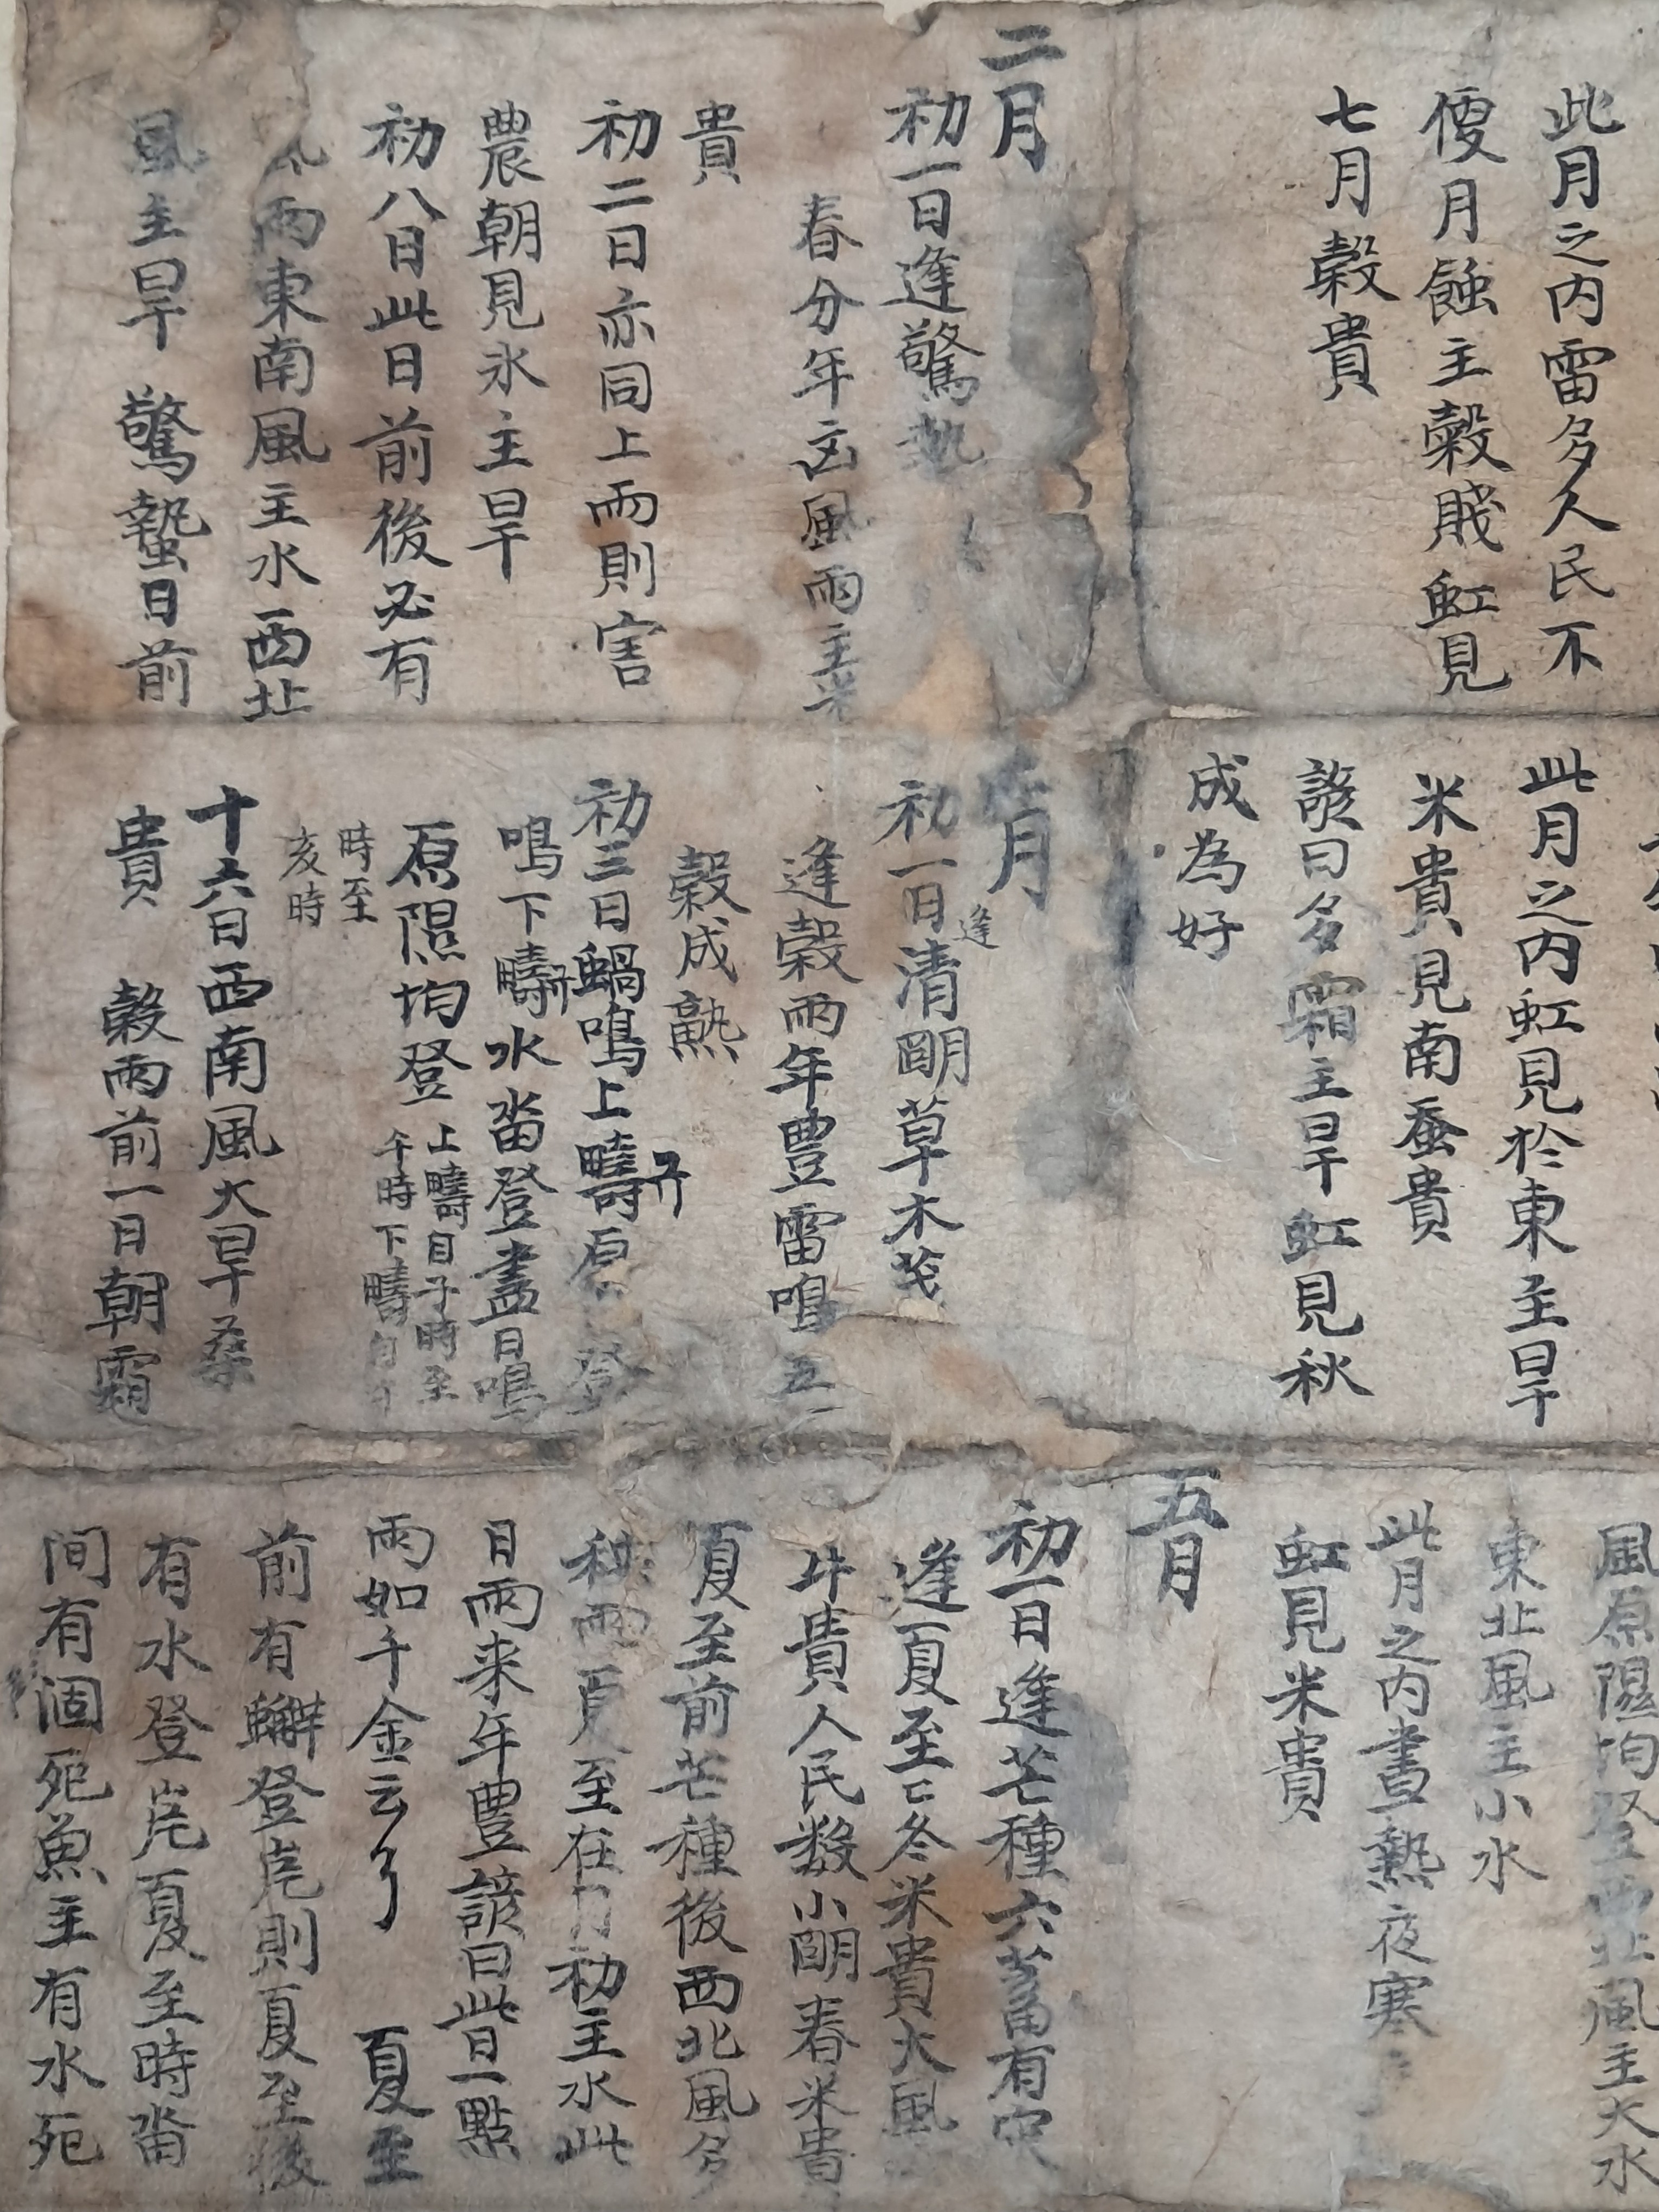 此月之內雷多人民不
侵月蝕主穀賤虹見
七月穀貴
二月
初一日逢驚蟄
春分年凶風雨主米
貴
初二日亦同上雨則害
農朝見氷主旱
初八日此日前後必有
風雨東南風主水西北
風主旱 驚蟄日前
此月之內虹見於東主旱
米貴見南蚕貴
諺曰多霜主旱虹見秋
成為好
月
初一日逢清明草木茂
逢穀雨年豊雷鳴五
穀成熟
初三日蝸鳴上疇구原登
鳴下疇구水畓登盡日鳴
原隰均登 上疇自子時至
午時下疇自午
時至
亥時
十六日西南風大旱桑
貴 穀雨前一日朝霜
風原隰均登西北風主大水
東北風主小水
此月之內晝熱夜寒
虹見米貴
五月
初一日逢芒種六畜有灾
逢夏至已冬米貴大風
牛貴人民数小明春米貴
夏至前芒種後西北風多
秋雨夏至在月初主水此
日雨来年豊諺曰此日一點
雨如千金云々 夏至
前有蠏登岸則夏至後
有水登岸夏至時畓
間有涸死魚主有水死